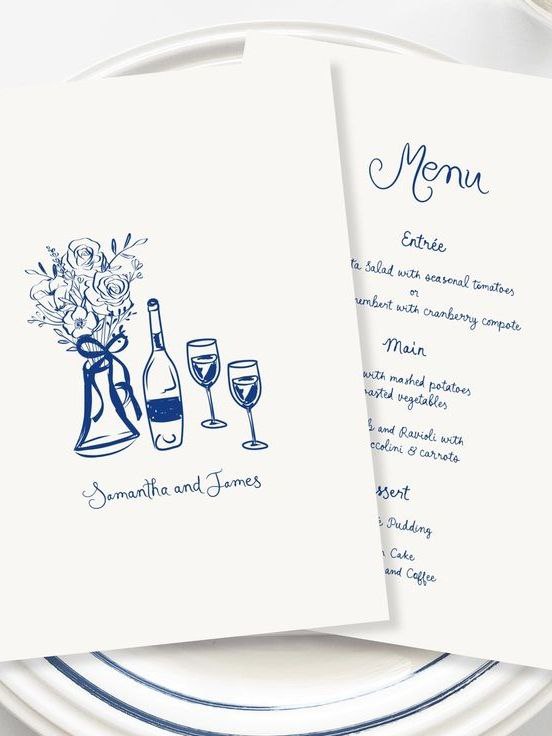 Samantha and James
Menu
Entrée
Salad with seasonal tomatoes
or
with cranberry compote
Main
with mashed potatoes
vegetables
and Ravioli with
& carrots
Pudding
Cake
and Coffee